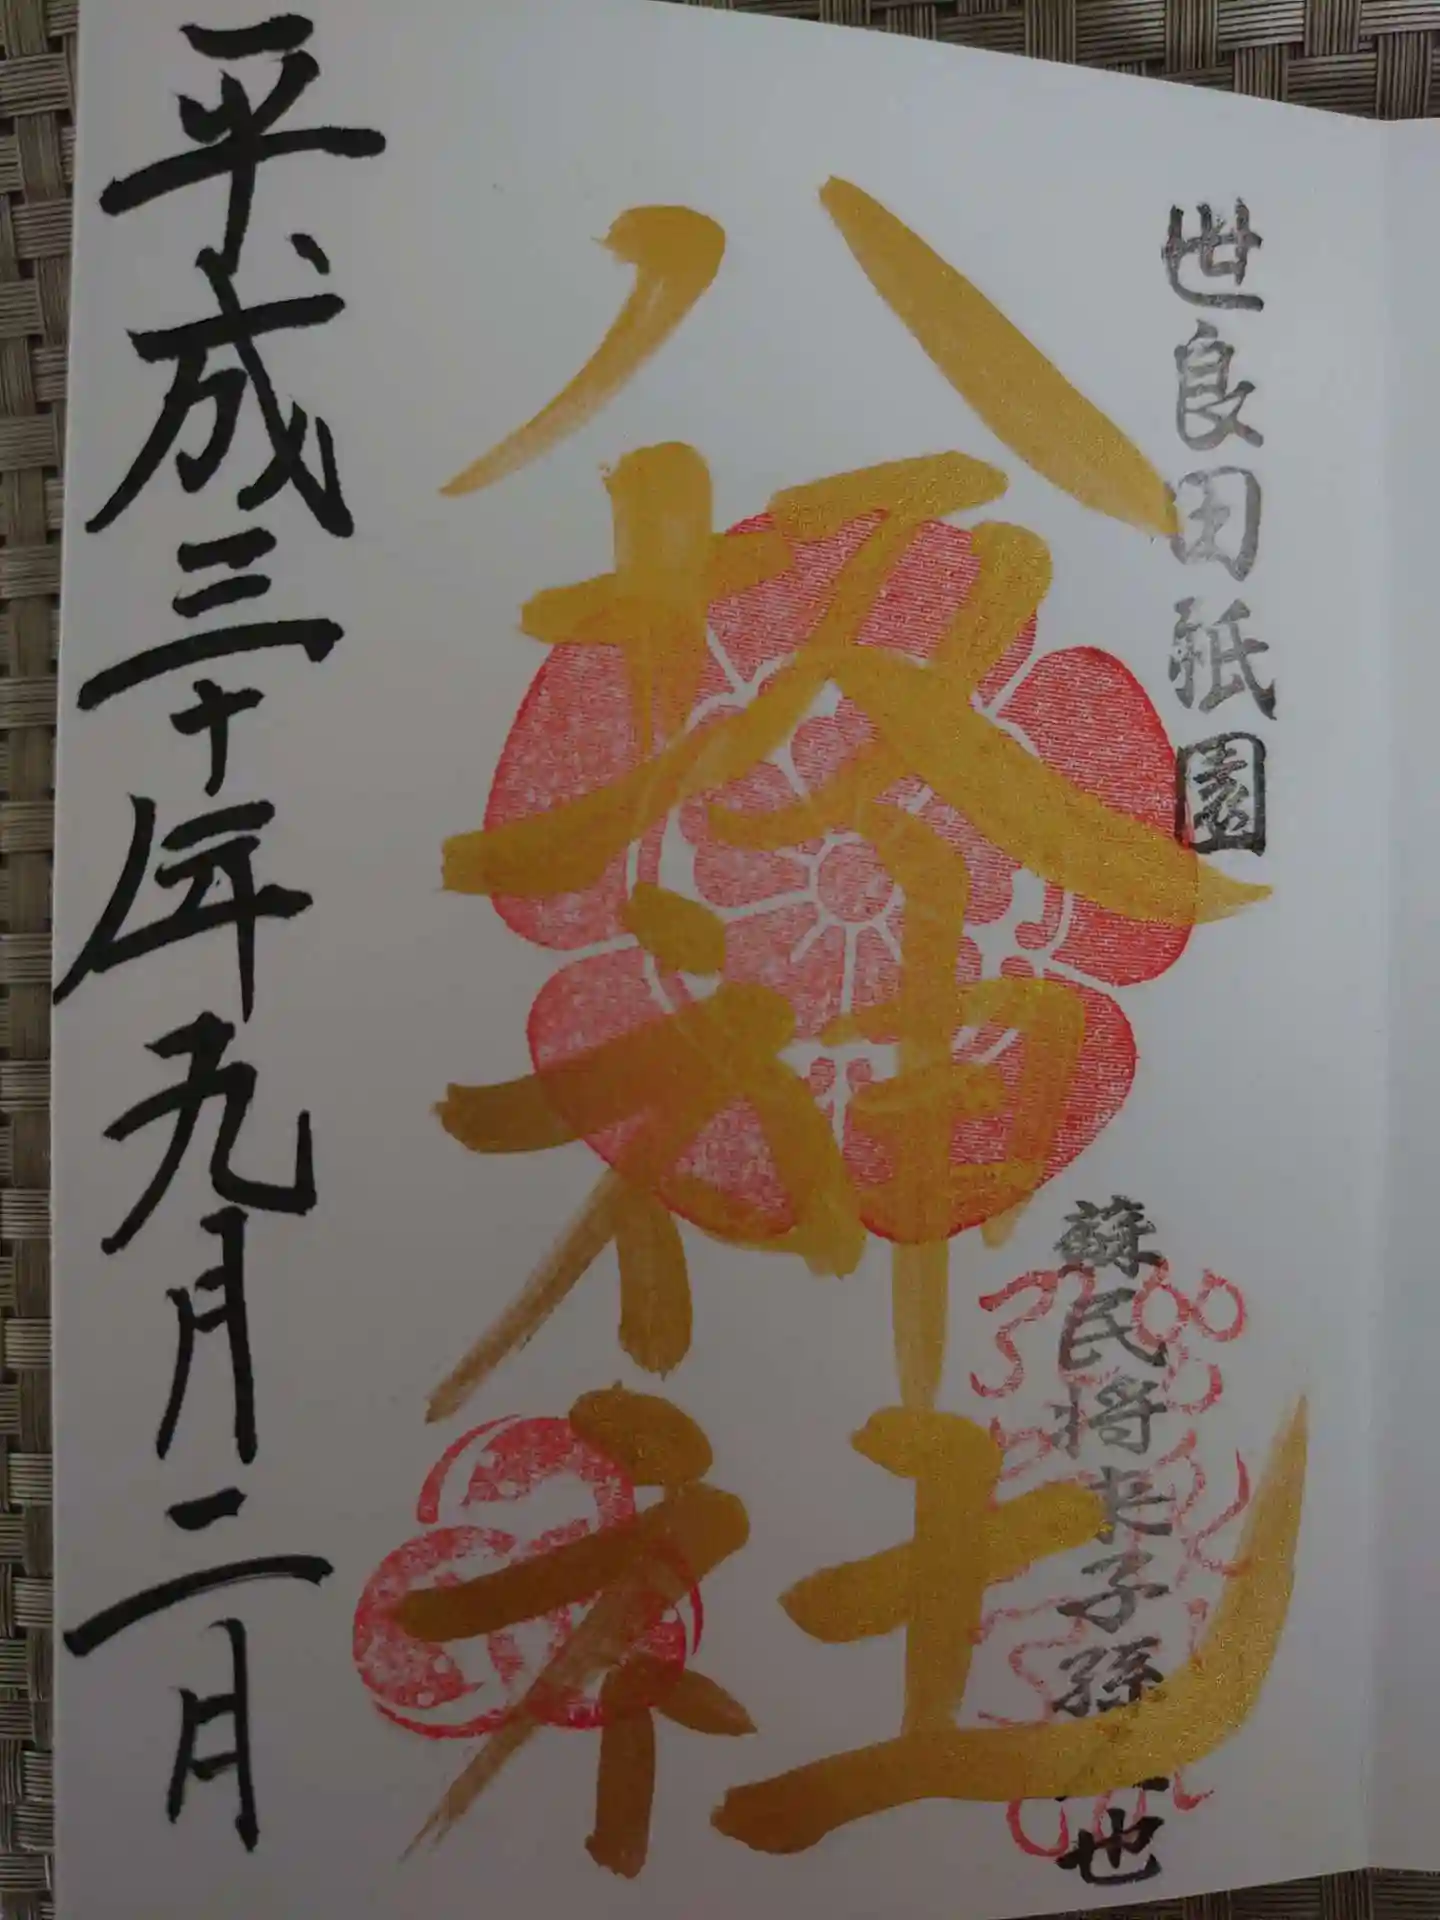 世良田祇園
蘇民将来子孫也
八坂神社
平成三十年九月二日